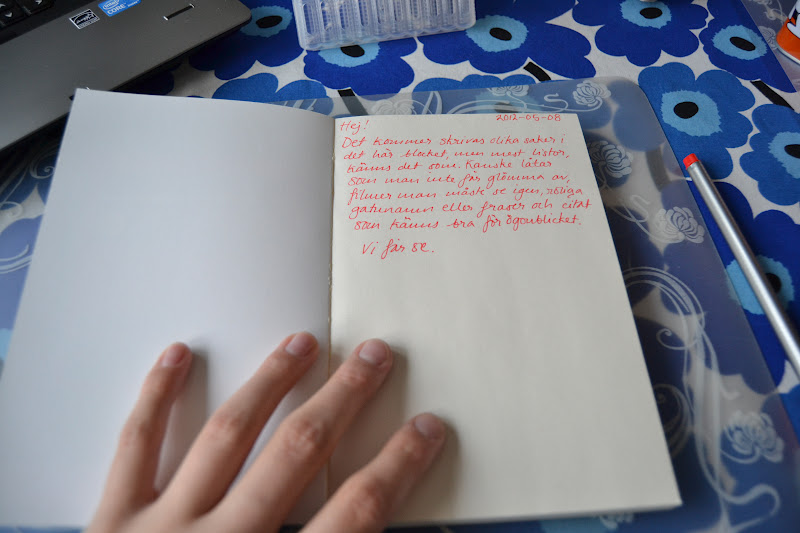 2012-05-08
Hej!
Det kommer skrivas olika saker i
det här blocket, men mest listor,
känns det som. Kanske låtar
som man inte får glömma av,
filmer man måste se igen, roliga
gatunamn eller fraser och citat
som känns bra för ögonblicket.
Vi får se.